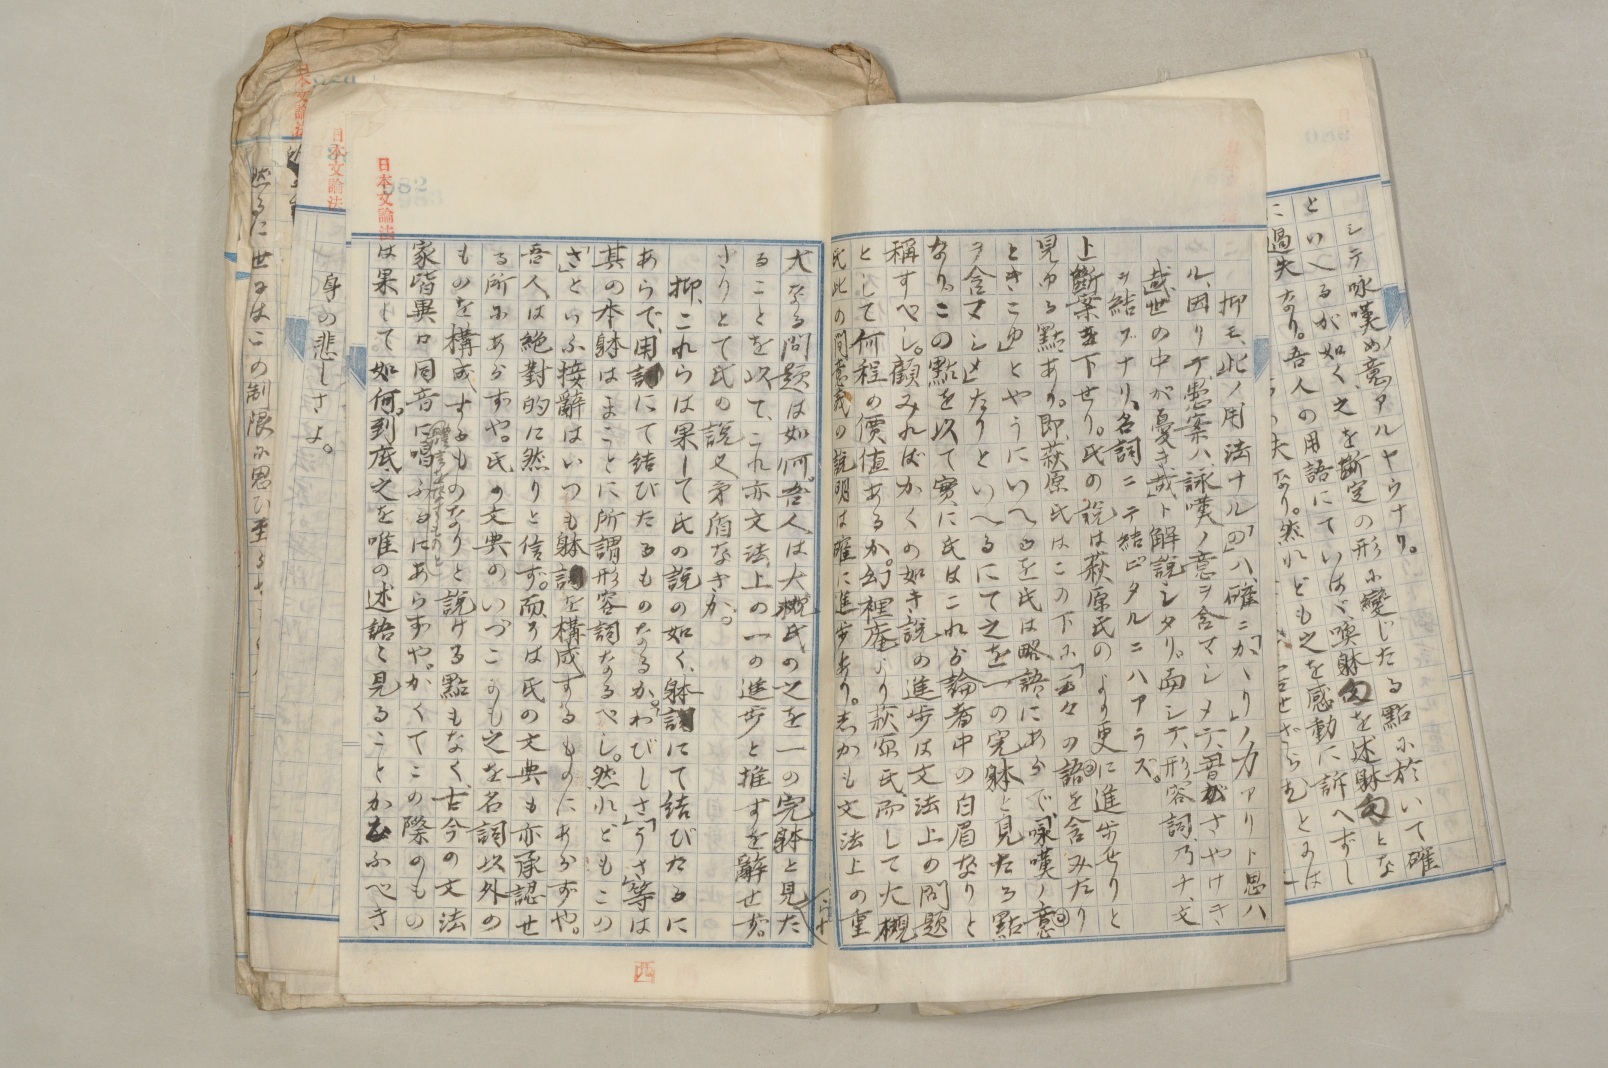 シテ咏嘆ノ意アルヤウナリ。
點に於いて確
といへるが如く、之を斷定の形に變じたる
に過失なり。吾人の用語にていはゞ、喚躰句を述躰句とな
然れども之を感動に訴へずし
抑モ、此ノ用法ナル「の」ハ、確ニ「が」、「り」ノ力アリト思ハ
ル、因リテ愚案ハ、詠嘆ノ意ヲ含マシメテ、「音がさやけき
哉」「世の中が憂き哉」ト解説シタリ。而シテ、形容詞、乃チ、文
ヲ結ブナリ、名詞ニテ結ビタルニハアラズ。
ト斷案を下せり。氏の説は萩原氏のより更に進歩せりと
見ゆる點あり。即、萩原氏はこの下に「云々の語を含みたり
ときこゆ」とやうにいへるを氏は略語にあらで、「咏嘆ノ意
ヲ含マシめたりといへるにて之を一の完躰と見たる點
なり。この點を以て、實に氏はこれら論者中の白眉なりと
稱すべし。顧みればかくの如き説の進歩は文法上の問題
として何程の價値あるか。幻裡庵より萩原氏而して大槻
氏此の間意義の説明は確に進歩あり。しかも文法上の重
大なる問題は如何。吾人は大槻氏の之を一の完躰と見た
ることを以て、これ亦文法上の一の進歩と推すを辭せず。
さりとて氏の説又矛盾なきか。
抑、これらは果して氏の説の如く、躰詞にて結びたるに
あらで、用詞にて結びたるものなるか。「わびしさ」「うさ」等は
其の本躰はまことに所謂形容詞なるべし。然れどもこの
「さ」といふ接辭はいつも躰詞を構成するものにあらずや。
吾人は絶對的に然りと信ず。而るは氏の文典も亦承認せ
る所にあらずや。氏の文典のいづこにも之を名詞以外の
ものを構成するものなりと説ける點もなく、古今の文法
家皆異口同音に唱ふるにあらずや。かくてこの際のもの
は果して如何。到底、之を唯の述語と見ることか云ふべき
身の悲しさよ。
然るに世にはこの制限に思ひ至る
日本文論法
日本文論法
日本文論法
982
西